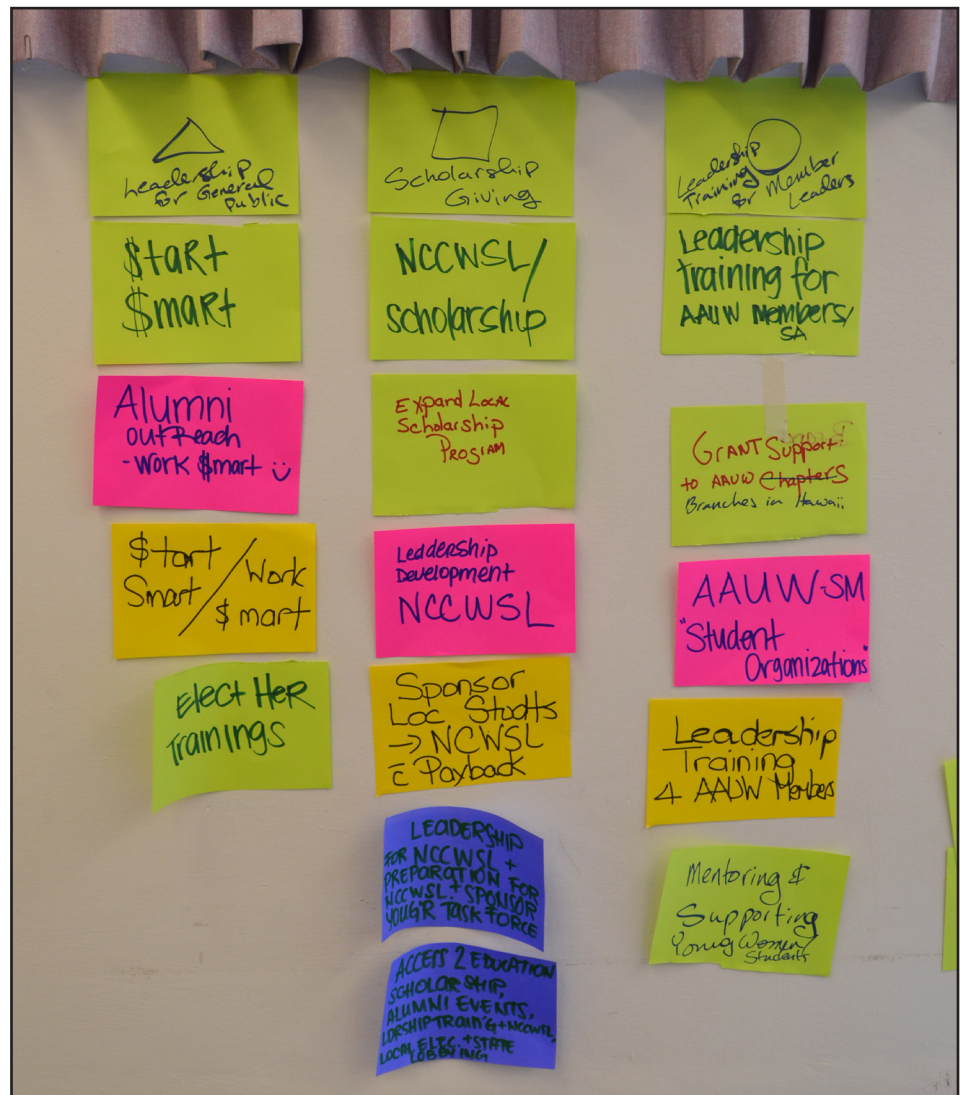 Leadership
for General
Public
$taRt
$maRt
Alumni
outReach
- Work $mart
$tart
Smart / Work
$mart
Elect HeR
Trainings
Scholarship
Giving
NCCWSL/
scholarship
Expand Local
Scholarship
Program
Leadership
Development
NCCWSL
Sponsor
Loc Studts
→ NCWSL
c̄ Payback
LEADERSHIP
FOR NCCWSL +
PREPARATION FOR
NCCWSL + SPONSOR
YOUG'R TASK FORCE
ACCESS 2 EDUCATION
SCHOLARSHIP,
ALUMNI EVENTS,
LDRSHIP TRAIN'G + NCCWSL,
LOCAL ELEC. + STATE
LOBBYING
Leadership
Training
for Member
Leaders
Leadership
Training for
AAUW Members/
SA
GRANT Support
to AAUW Chapters
Branches in Hawaii
AAUW-SM
"Student
Organizations"
Leadership
Training
4 AAUW Members
Mentoring &
Supporting
Young Women/
Students